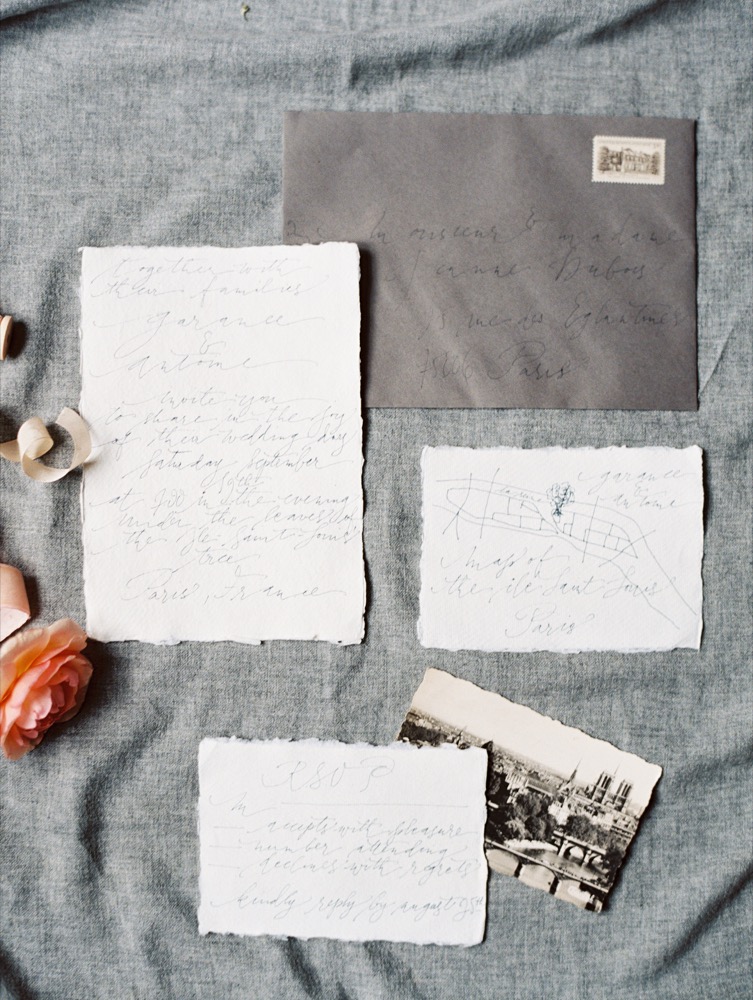 together with
their families
garance
&
antoine
invite you
to share in the joy
of their wedding day
saturday, september
at in the evening
under the leaves of
the ile saint-louis
tree
Paris, France
monsieur & madame
Dubois
Eglantines
Paris
garance
&
antoine
map of
the ile saint-louis
Paris
RSVP
M
accepts with pleasure
number attending
declines with regrets
kindly reply by august